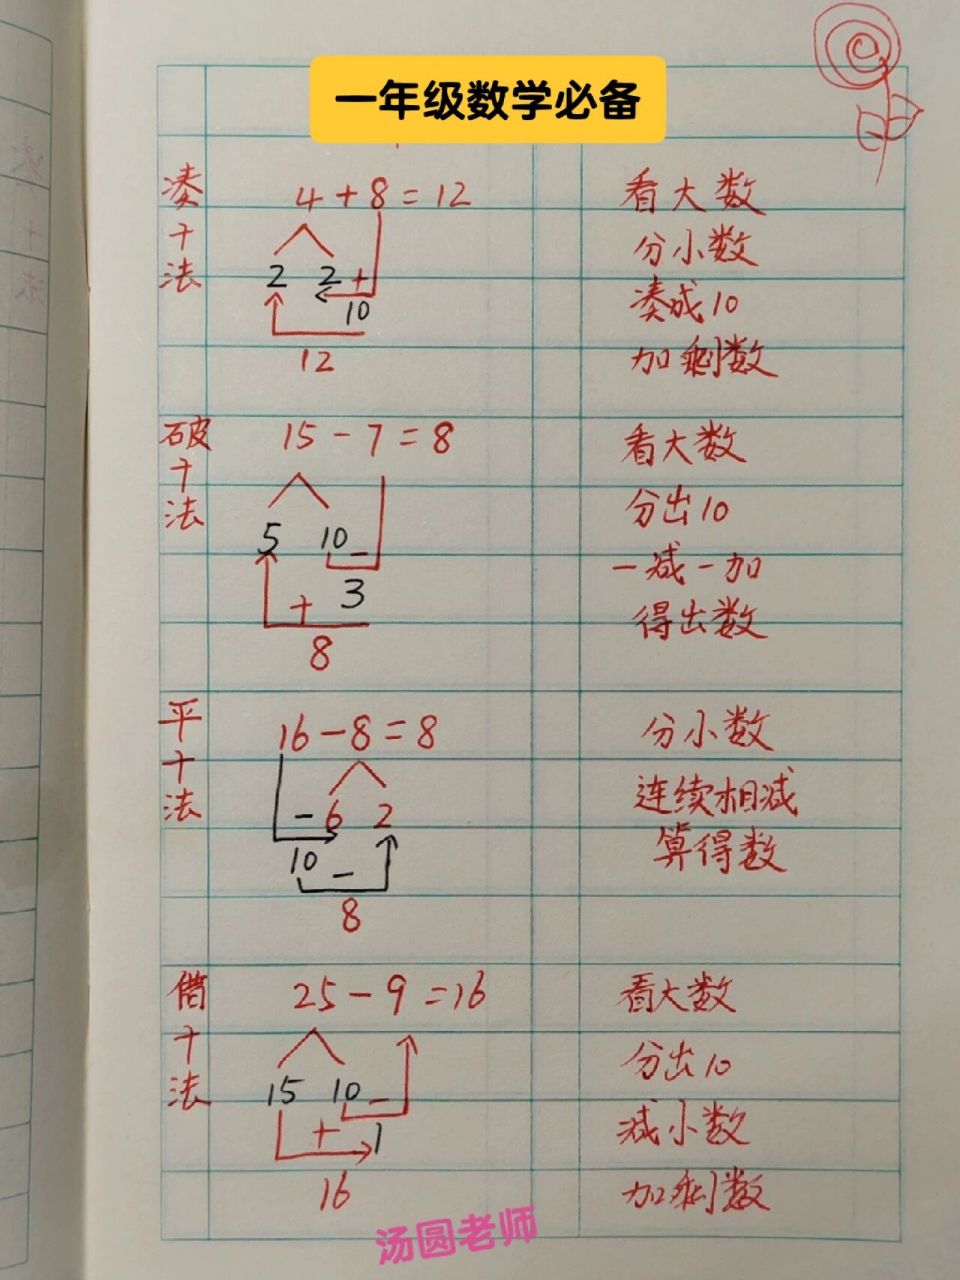 一年级数学必备
凑十法
4+8=12
2 2 +
10
12
看大数
分小数
凑成10
加剩数
破十法
15-7=8
5 10 -
+ 3
8
看大数
分出10
一减一加
得出数
平十法
16-8=8
- 6 2
10 -
8
分小数
连续相减
算得数
借十法
25-9=16
15 10 -
+ 1
16
看大数
分出10
减小数
加剩数
汤圆老师